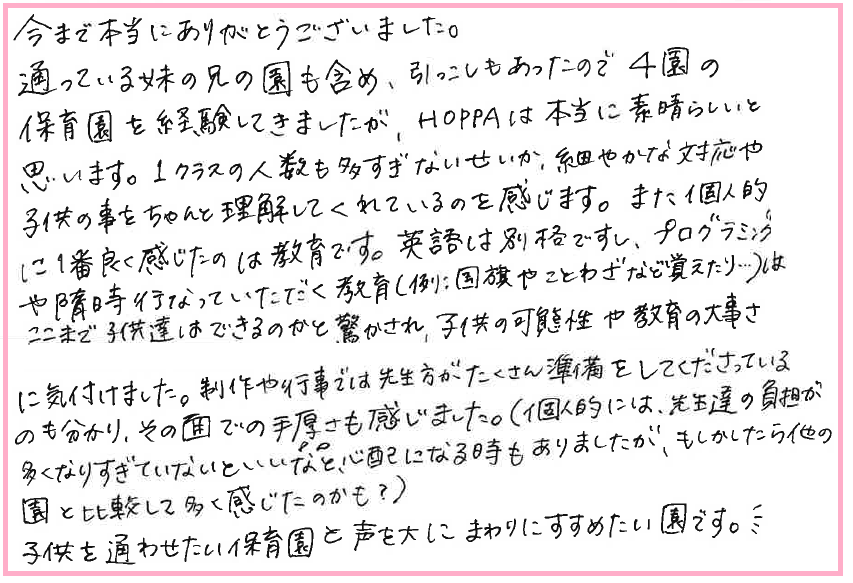 今まで本当にありがとうございました。
通っている妹の兄の園も含め、引っこしもあったので4園の
保育園を経験してきましたが、HOPPAは本当に素晴らしいと
思います。1クラスの人数も多すぎないせいか、細やかな対応や
子供の事をちゃんと理解してくれているのを感じます。また個人的
に1番良く感じたのは教育です。英語は別格ですし、プログラミング
や随時行なっていただく教育(例:国旗やことわざなど覚えたり…)は
ここまで子供達はできるのかと驚かされ、子供の可能性や教育の大事さ
に気付けました。制作や行事では先生方がたくさん準備をしてくださっている
のも分かり、その面での手厚さも感じました。(個人的には、先生達の負担が
多くなりすぎていないといいなぁと、心配になる時もありましたが、もしかしたら他の
園と比較して多く感じたのかも?)
子供を通わせたい保育園と声を大にまわりにすすめたい園です。